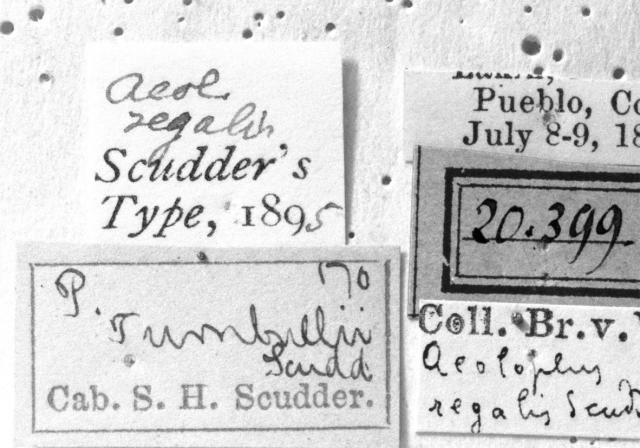 Aeol.
regalis
Scudder's
Type, 1895
170
P. Turnbullii
Scudd
Cab. S. H. Scudder.
Pueblo, Co
July 8-9, 18
20.399
Coll. Br. v.
Aeoloplus
regalis Scudd